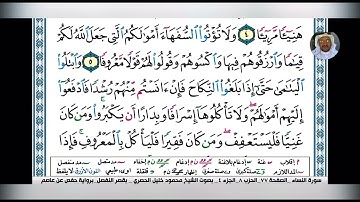 هَنِيٓـٔٗا مَّرِيٓـٔٗا ٤ وَلَا تُؤۡتُواْ ٱلسُّفَهَآءَ أَمۡوَٰلَكُمُ ٱلَّتِي جَعَلَ ٱللَّهُ لَكُمۡ
قِيَٰمٗا وَٱرۡزُقُوهُمۡ فِيهَا وَٱكۡسُوهُمۡ وَقُولُواْ لَهُمۡ قَوۡلٗا مَّعۡرُوفٗا ٥ وَٱبۡتَلُواْ
ٱلۡيَتَٰمَىٰ حَتَّىٰٓ إِذَا بَلَغُواْ ٱلنِّكَاحَ فَإِنۡ ءَانَسۡتُم مِّنۡهُمۡ رُشۡدٗا فَٱدۡفَعُوٓاْ
إِلَيۡهِمۡ أَمۡوَٰلَهُمۡۖ وَلَا تَأۡكُلُوهَآ إِسۡرَافٗا وَبِدَارًا أَن يَكۡبَرُواْۚ وَمَن كَانَ
غَنِيّٗا فَلۡيَسۡتَعۡفِفۡۖ وَمَن كَانَ فَقِيرٗا فَلۡيَأۡكُلۡ بِٱلۡمَعۡرُوفِۚ فَإِذَا
سورة النساء - الصفحة ٧٧ - الجزء ٤ - بصوت الشيخ محمود خليل الحصري - بقصر المنفصل - برواية حفص عن عاصم